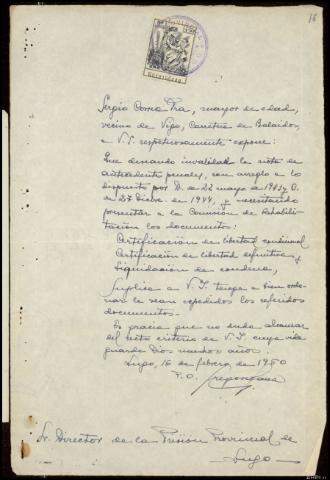 18
Sergio Correa Rra, mayor de edad,
vecino de Vigo, Carretera de Balaidos,
a V.I. respetuosamente expone:
Que deseando invalidar la nota de
antecedentes penales, con arreglo a lo
dispuesto por D. de 22 mayo de 1943 y O.
de 27 Dicbre. de 1944, y necesitando
presentar a la Comision de Rehabili-
tacion los documentos:
Certificación de libertad condicional
Certificación de libertad definitiva y
Liquidacion de condena,
Suplica a V.I. tenga a bien orde-
nar le sean expedidos los referidos
documentos.
Es gracia que no duda alcanzar
del recto criterio de V.I. cuya vida
guarde Dios muchos años.
Lugo, 16 de febrero de 1950
P.O.
Sr. Director de la Prisión Provincial de
Lugo